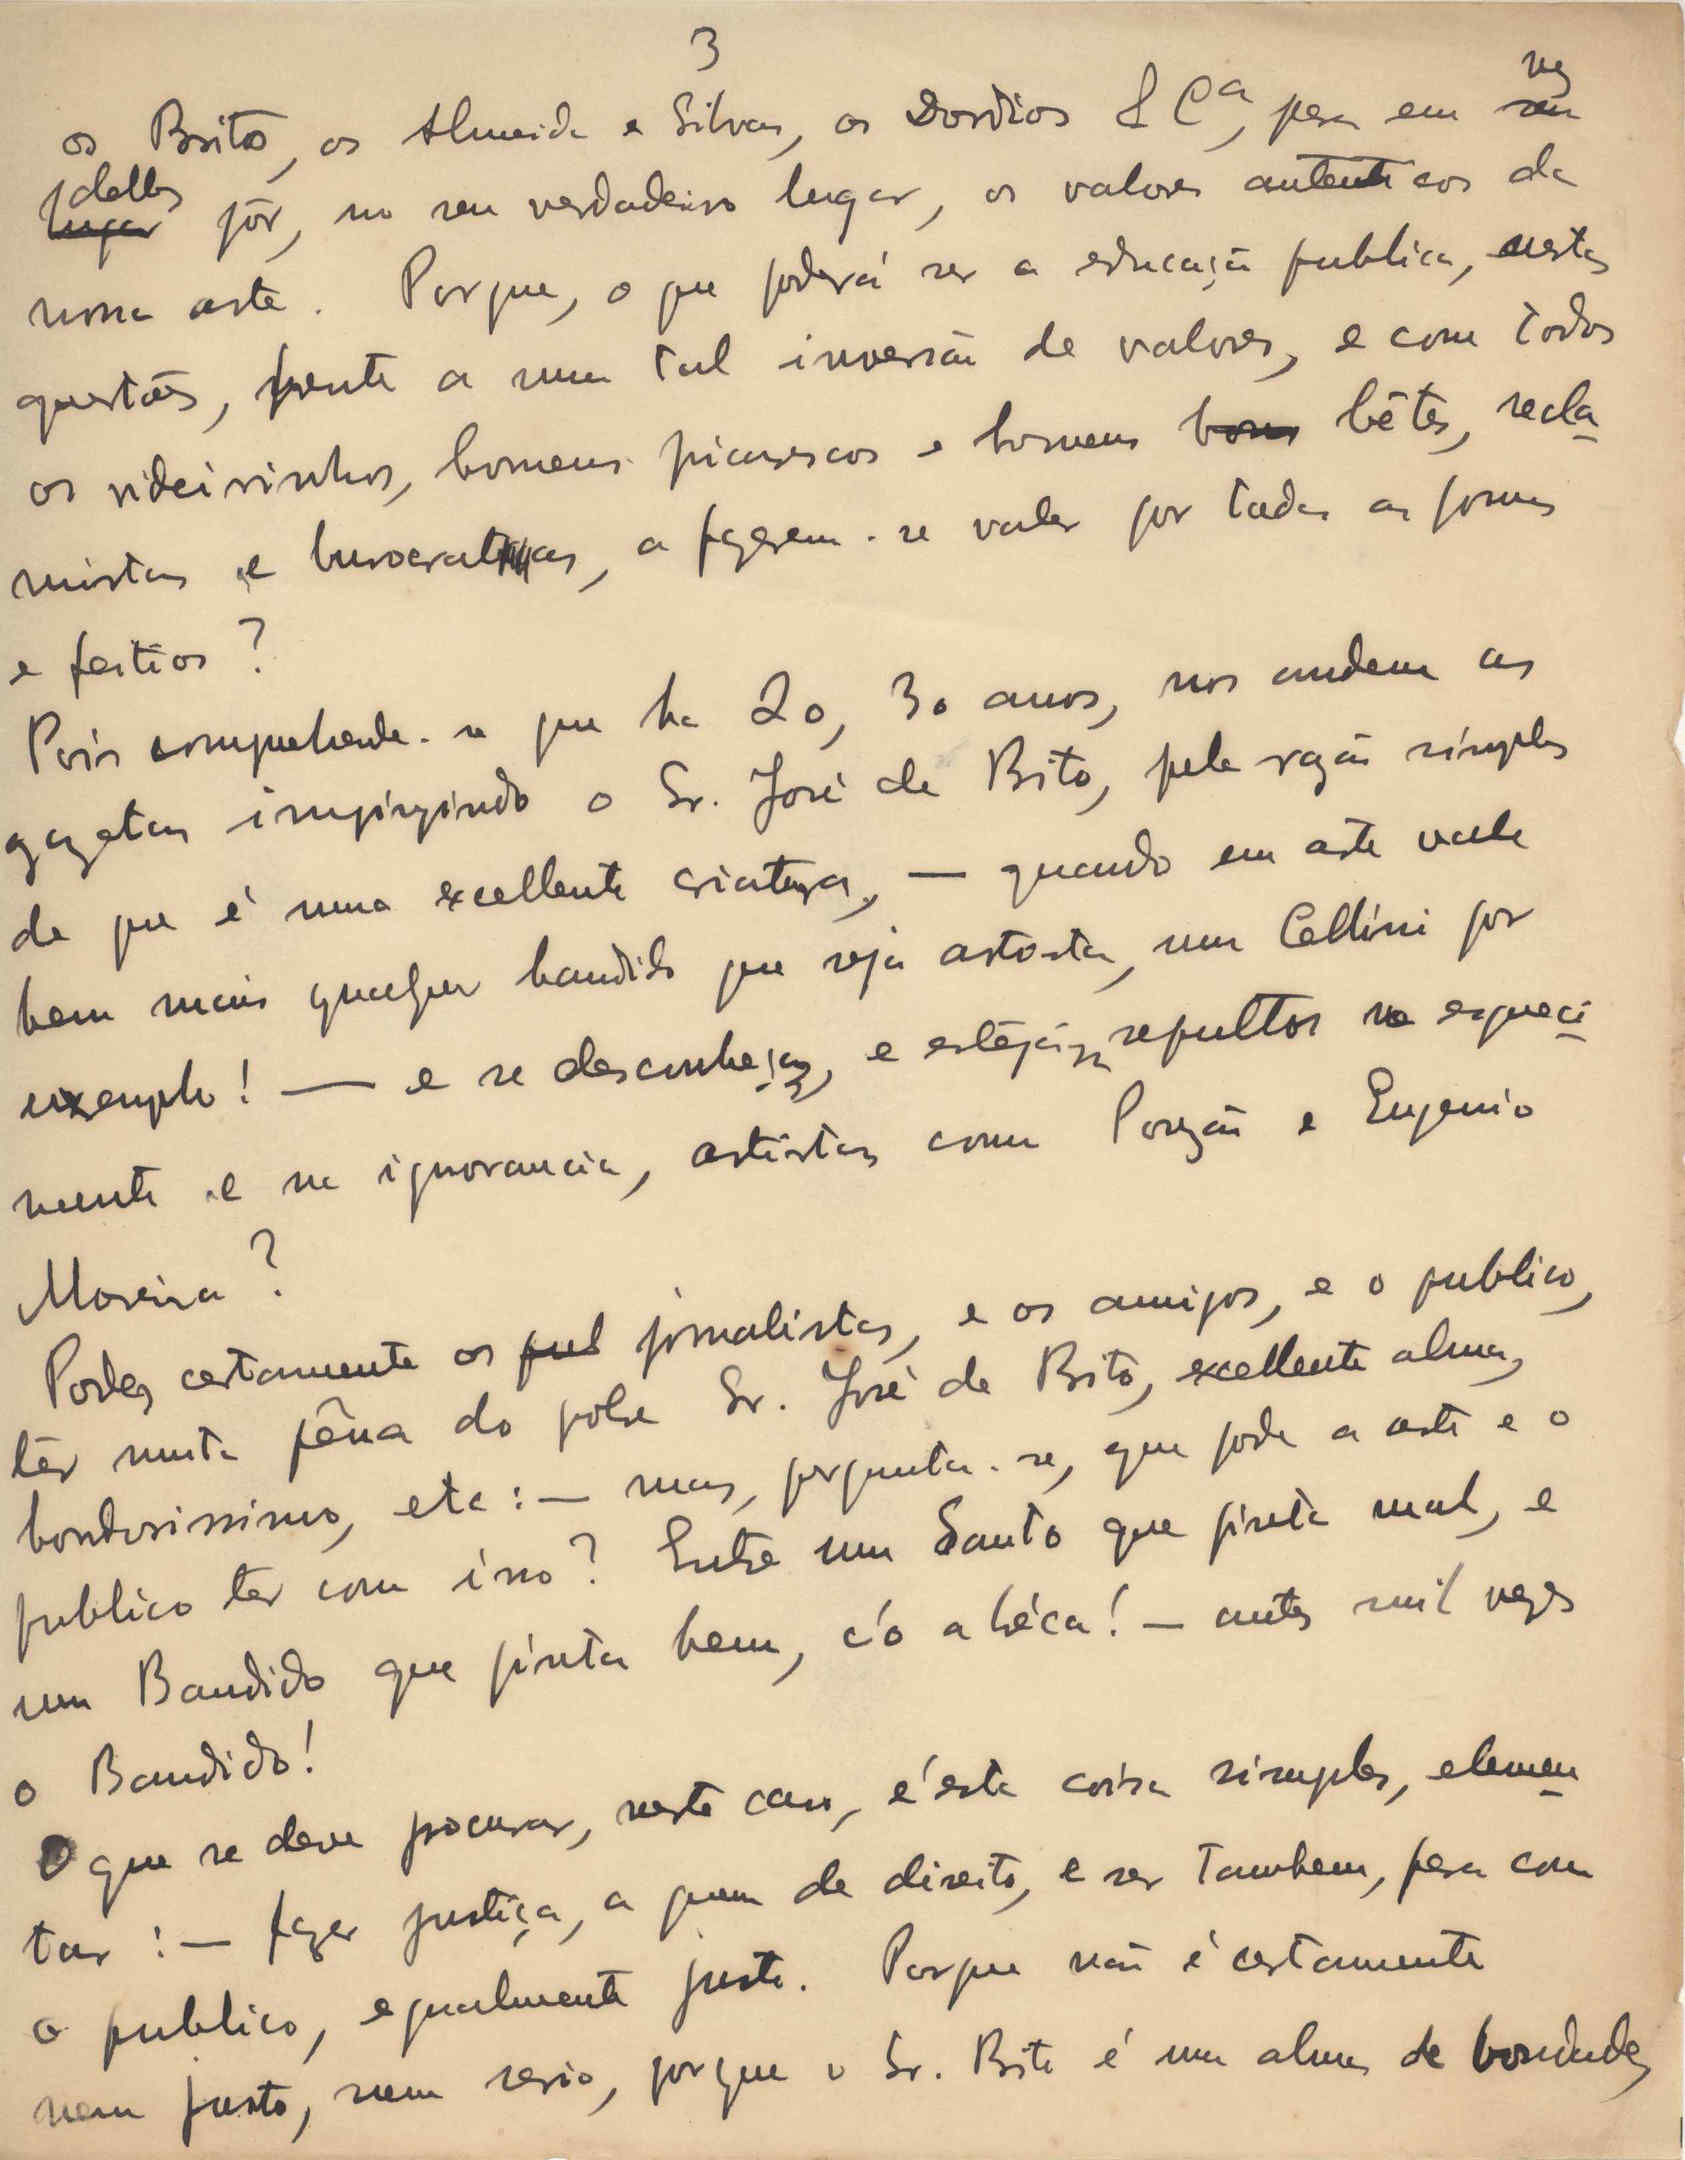 3
os Brito, os Almeida e Silvas, os Dordios & Cª, pera em vez
delles pôr, no seu verdadeiro lugar, os valores autenticos da
nossa arte. Porque, o que poderá ser a educação publica, nestas
questões, frente a uma tal inversão de valores, e com todos
os videirinhos, homens picarescos e homens bons bêtes, recla-
mistas e burocratas, a fazerem-se valer por todas as formas
e feitios?
Pois comprehende-se que ha 20, 30 anos, nos andem as
gazetas impingindo o Sr. José de Brito, pela razão simples
de que é uma excellente criatura, — quando em arte vale
bem mais qualquer bandido que seja artista, um Cellini por
exemplo! — e se desconheçam, e estejam sepultos no esqueci-
mento e na ignorancia, artistas como Pousão e Eugenio
Moreira?
Podem certamente os pub jornalistas, e os amigos, e o publico,
têr muita pêna do pobre Sr. José de Brito, excellente alma,
bondosissimo, etc: — mas, pergunta-se, que pode a arte e o
publico ter com isso? Entre um Santo que pinta mal, e
um Bandido que pinta bem, c'o a bréca! — antes mil vezes
o Bandido!
O que se deve procurar, neste caso, é esta coisa simples, elemen-
tar: — fazer justiça, a quem de direito, e ser tambem, pera com
o publico, egualmente justo. Porque não é certamente
nem justo, nem serio, porque o Sr. Brito é uma alma de bondade,